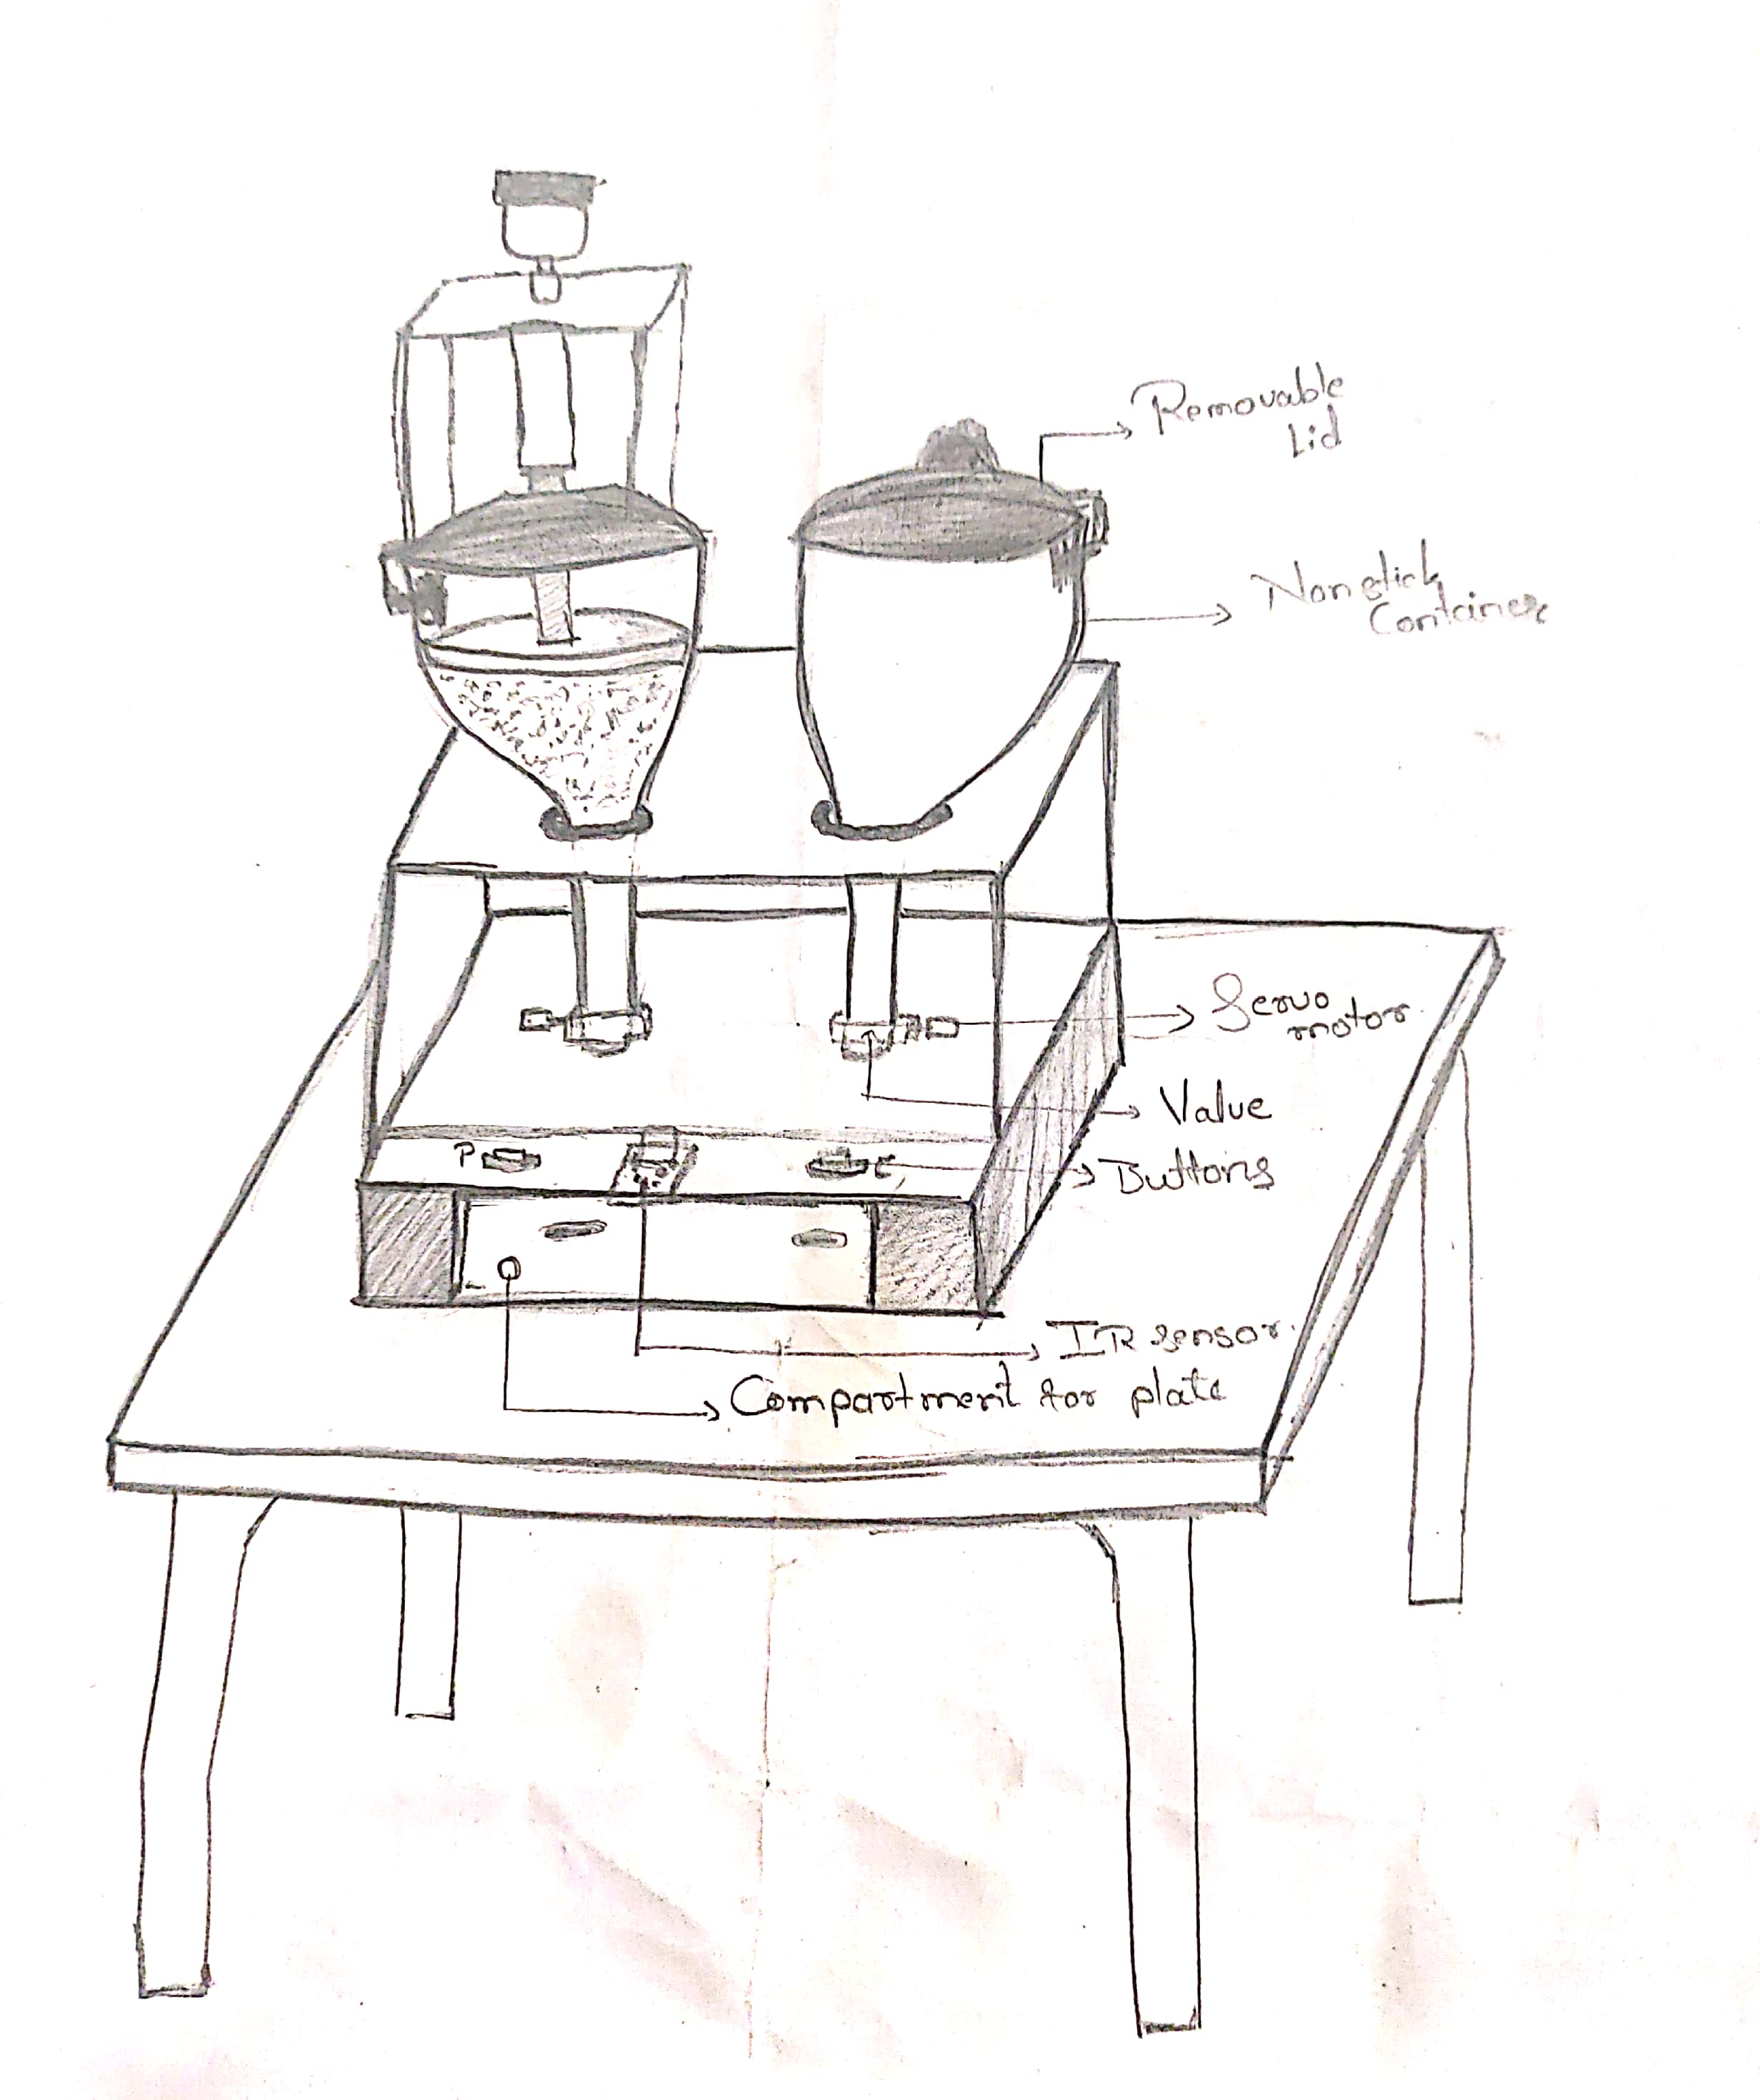 Removable
Lid
Nonstick
Container
Servo
motor
Value
P
C
Buttons
IR sensor.
Compartment for plate